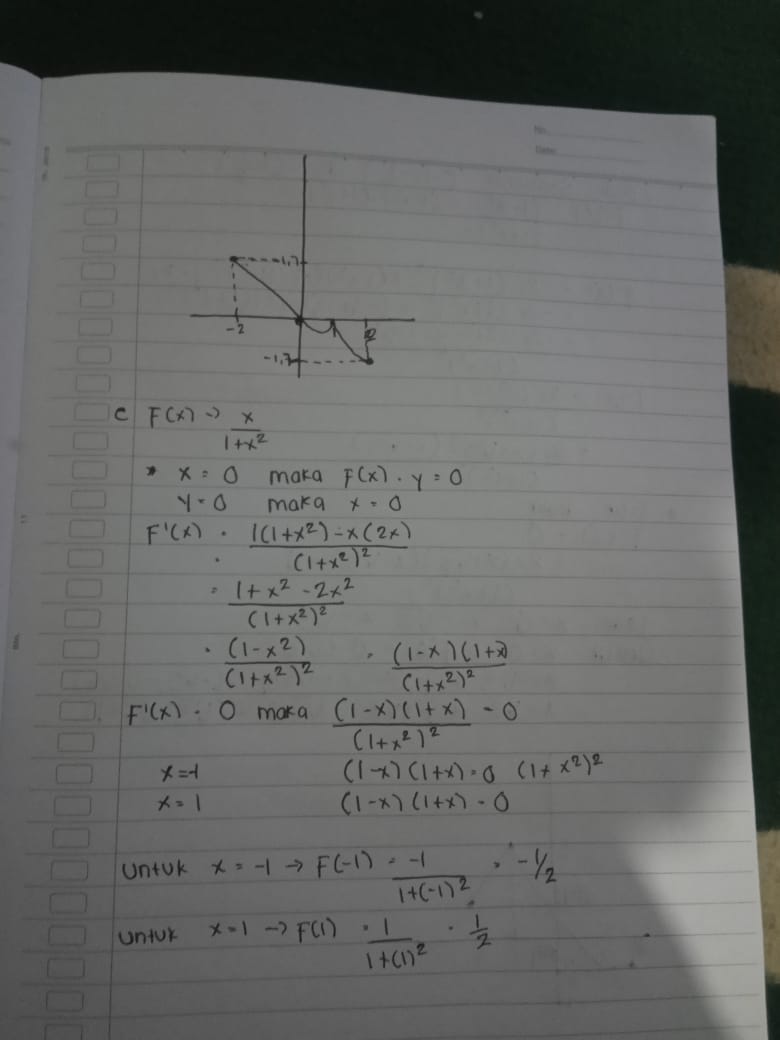 No.
Date:
1,7
-2
2
-1,7
c F(x) → x / 1+x²
* x = 0 maka F(x) . y = 0
y = 0 maka x = 0
F'(x) = 1(1+x²) - x(2x) / (1+x²)²
= 1 + x² - 2x² / (1+x²)²
= (1-x²) / (1+x²)² = (1-x)(1+x) / (1+x²)²
F'(x) = 0 maka (1-x)(1+x) / (1+x²)² = 0
x = -1 (1-x)(1+x) = 0 (1+x²)²
x = 1 (1-x)(1+x) = 0
untuk x = -1 → F(-1) = -1 / 1+(-1)² = -1/2
untuk x = 1 → F(1) = 1 / 1+(1)² = 1/2